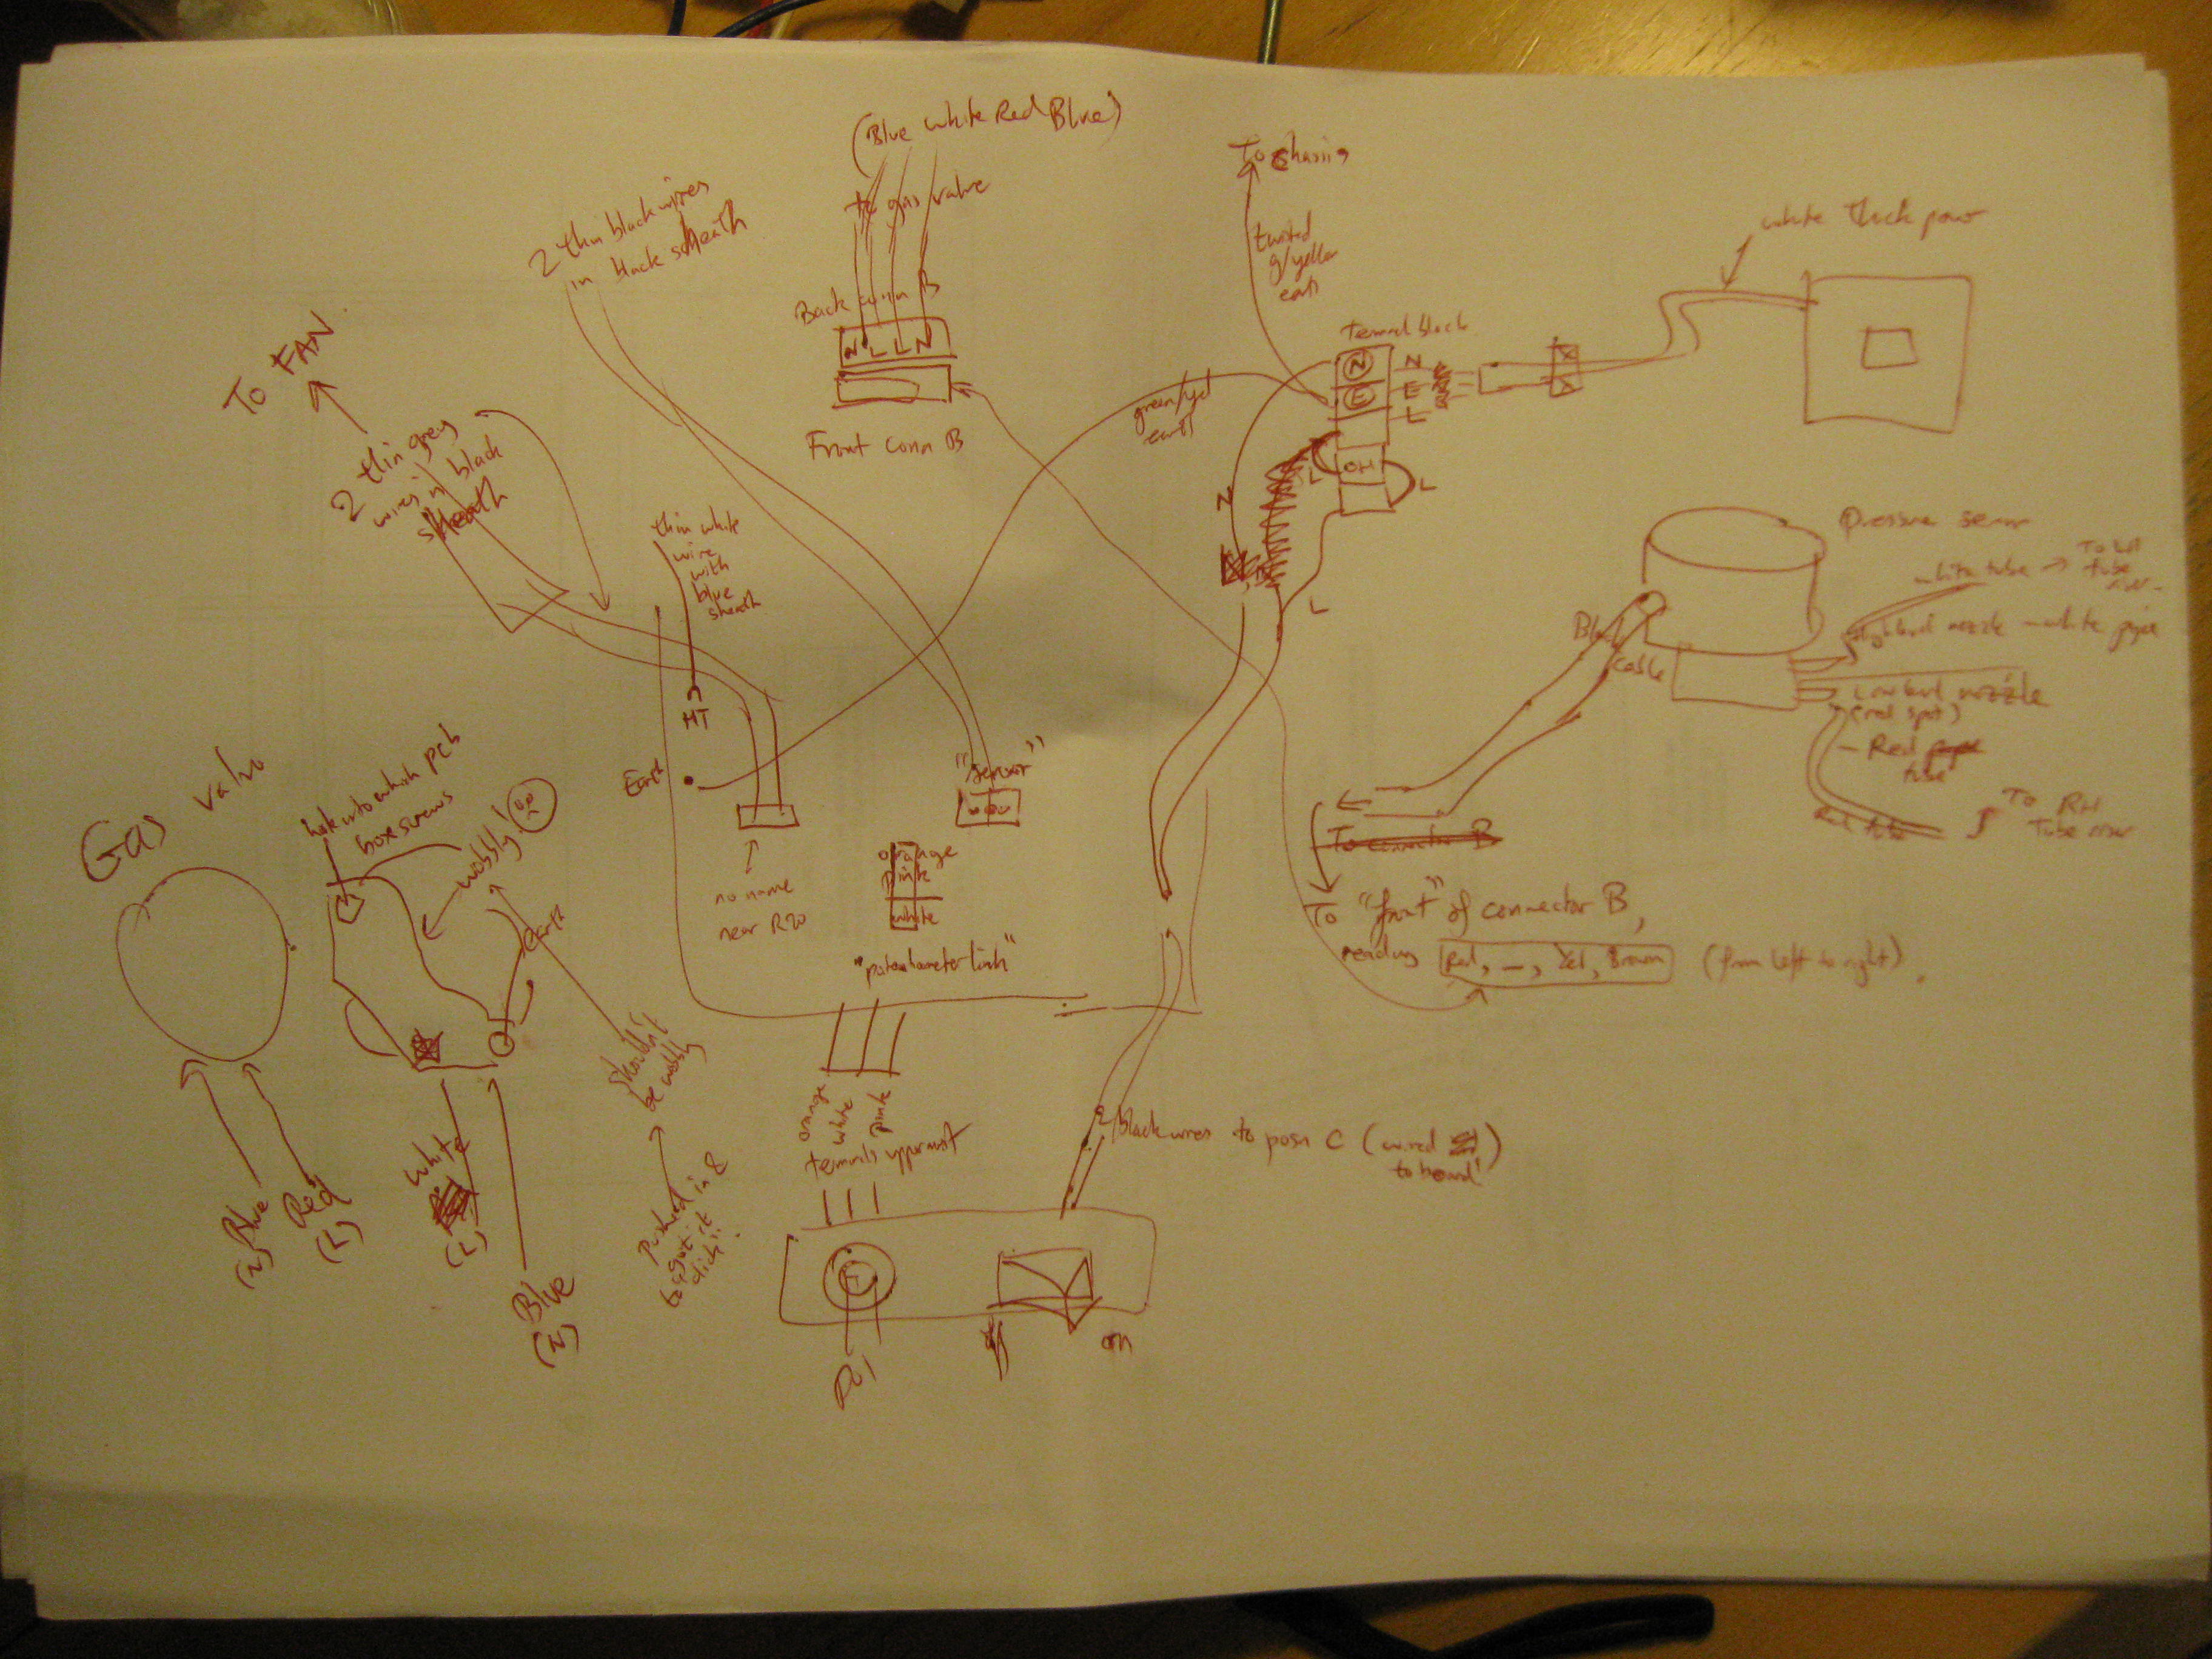 (Blue white Red Blue)
to gas valve
Back conn B
N L L N
Front conn B
2 thin black wires
in black sheath
To FAN
2 thin grey
wires in black
sheath
thin white
wire
with
blue
sheath
HT
Earth
no name
near R20
"sensor"
orange
pink
white
"potentiometer link"
orange
white
pink
terminals uppermost
Pot
on
2 black wires to posn C (wired
to board)
To chassis
twisted
g/yellow
earth
green/yel
earth
Terminal block
N N
E E
L
L
L
N
L
white thick power
Pressure sensor
white tube → To
tube
High level nozzle - white pipe
Low level nozzle
(red spot)
- Red
tube
Red tube
To RH
Tube
Black
cable
To connector B
To "front" of connector B,
reading Red, —, Yel, Brown (from left to right).
Gas valve
hole into which pcb
box screws
wobbly!
earth
shouldn't
be wobbly
Pushed in &
to get it
click!
Blue
(N)
Red
(L)
White
(L)
Blue
(N)